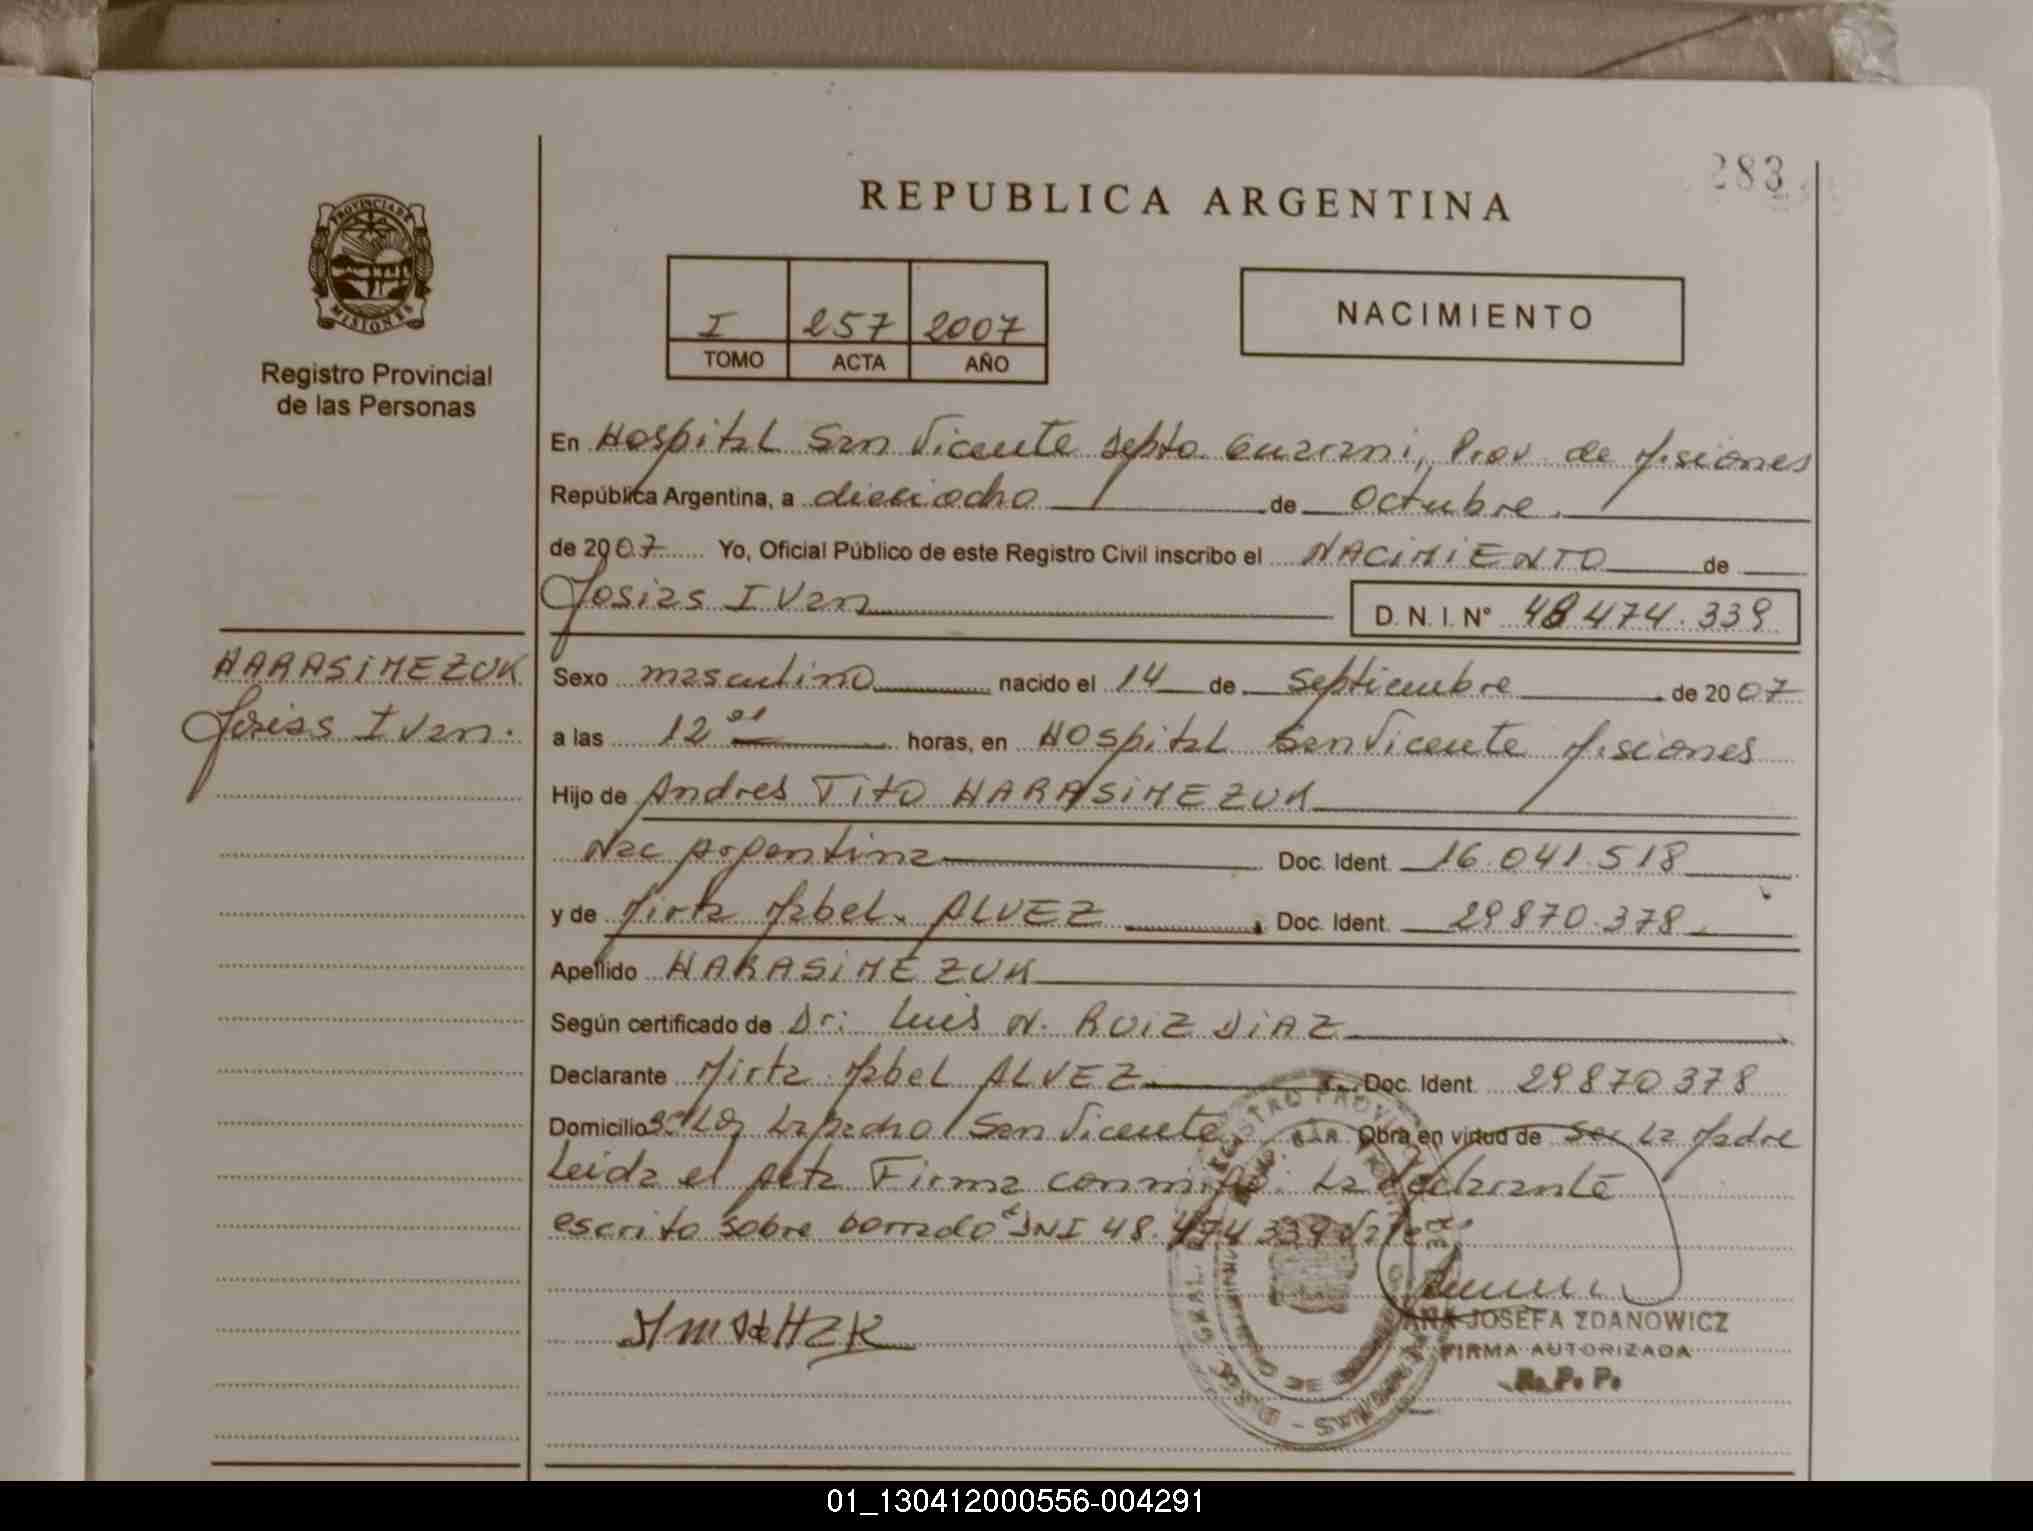 283
REPUBLICA ARGENTINA
PROVINCIA DE
MISIONES
Registro Provincial
de las Personas
I 257 2007
TOMO ACTA AÑO
NACIMIENTO
En Hospital San Vicente Depto. Guarani, Prov. de Misiones
República Argentina, a dieciocho de Octubre.
de 2007 Yo, Oficial Público de este Registro Civil inscribo el NACIMIENTO de
Josias Ivan
D. N. I. N° 48 474.339
HARASIMEZUK
Josias Ivan.
Sexo masculino nacido el 14 de septiembre de 2007
a las 12 horas, en Hospital San Vicente Misiones
Hijo de Andres Tito HARASIMEZUK
Nac Argentina Doc. Ident. 16.041.518
y de Mirta Mabel. ALVEZ Doc. Ident. 29870.378.
Apellido HARASIMEZUK
Según certificado de Dr: Luis N. RUIZ DIAZ
Declarante Mirta Mabel ALVEZ Doc. Ident. 29870378
Domicilio Lapacho San Vicente. Obra en virtud de ser la Madre
Leida el Acta Firma conmigo. La declarante
escrito sobre borrado DNI 48.474339 Vale
ANA JOSEFA ZDANOWICZ
FIRMA AUTORIZADA
R. P. P.
01_130412000556-004291